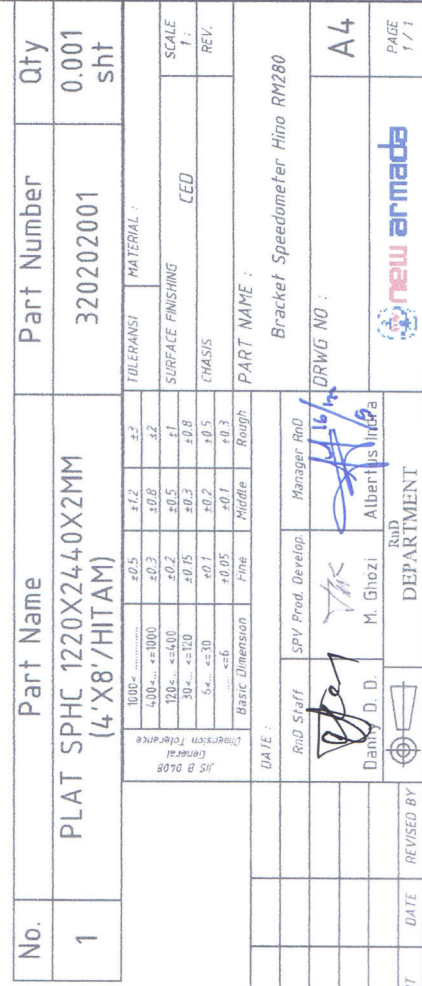 No. Part Name Part Number Qty
1 PLAT SPHC 1220X2440X2MM 320202001 0.001
(4'X8'/HITAM) sht
JIS B 0408
General
Dimension Tolerance
1000< ............ ±0.5 ±1.2 ±3
400<... <=1000 ±0.3 ±0.8 ±2
120<... <=400 ±0.2 ±0.5 ±1
30<... <=120 ±0.15 ±0.3 ±0.8
6<... <=30 ±0.1 ±0.2 ±0.5
... <=6 ±0.05 ±0.1 ±0.3
Basic Dimension Fine Middle Rough
TOLERANSI MATERIAL : SCALE
1 :
SURFACE FINISHING CED REV.
CHASIS
PART NAME :
Bracket Speedometer Hino RM280
DATE :
RnD Staff SPV Prod. Develop. Manager RnD
DRWG NO : A4
Danny D. D. M. Ghozi Albertus Indra
RnD
DEPARTMENT
new armada
PAGE
1 / 1
DATE REVISED BY